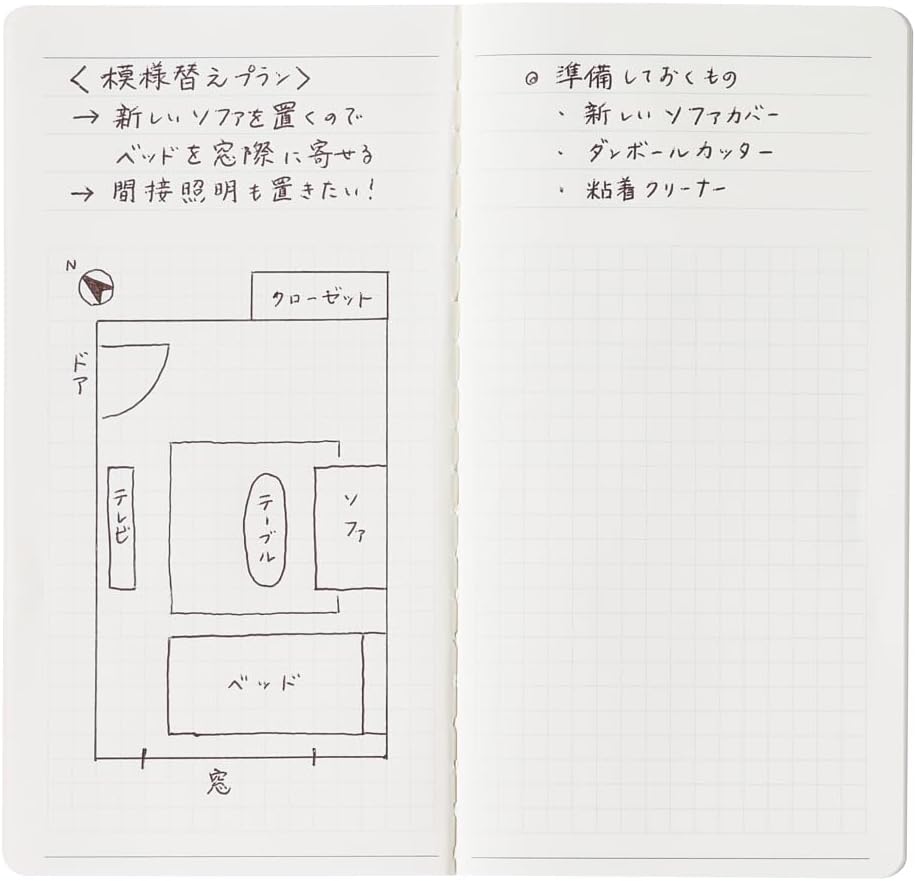 〈模様替えプラン〉
→ 新しいソファを置くので
ベッドを窓際に寄せる
→ 間接照明も置きたい！
N
クローゼット
ドア
テレビ
テーブル
ソファ
ベッド
窓
◎ 準備しておくもの
・新しいソファカバー
・ダンボールカッター
・粘着クリーナー